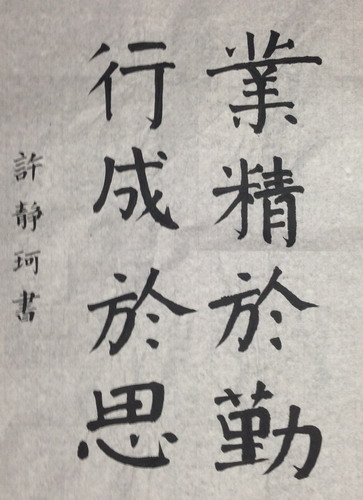 業精於勤
行成於思
許靜珂書